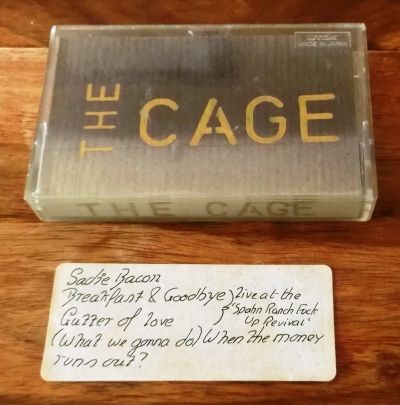 MADE IN JAPAN
THE CAGE
THE CAGE
Sadie Bacon
Breakfast & Goodbye) Live at the
Gutter of love } "Spahn Ranch Fuck
Up Revival"
(What we gonna do) When the money
runs out?